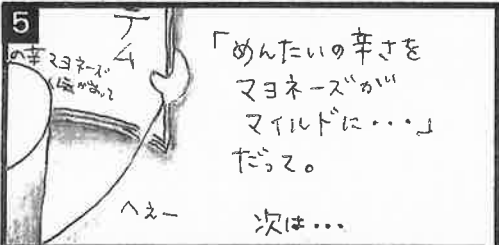 5
テム
の辛
マヨネーズ
があって
「めんたいの辛さを
マヨネーズが
マイルドに・・・」
だって。
へぇー
次は・・・